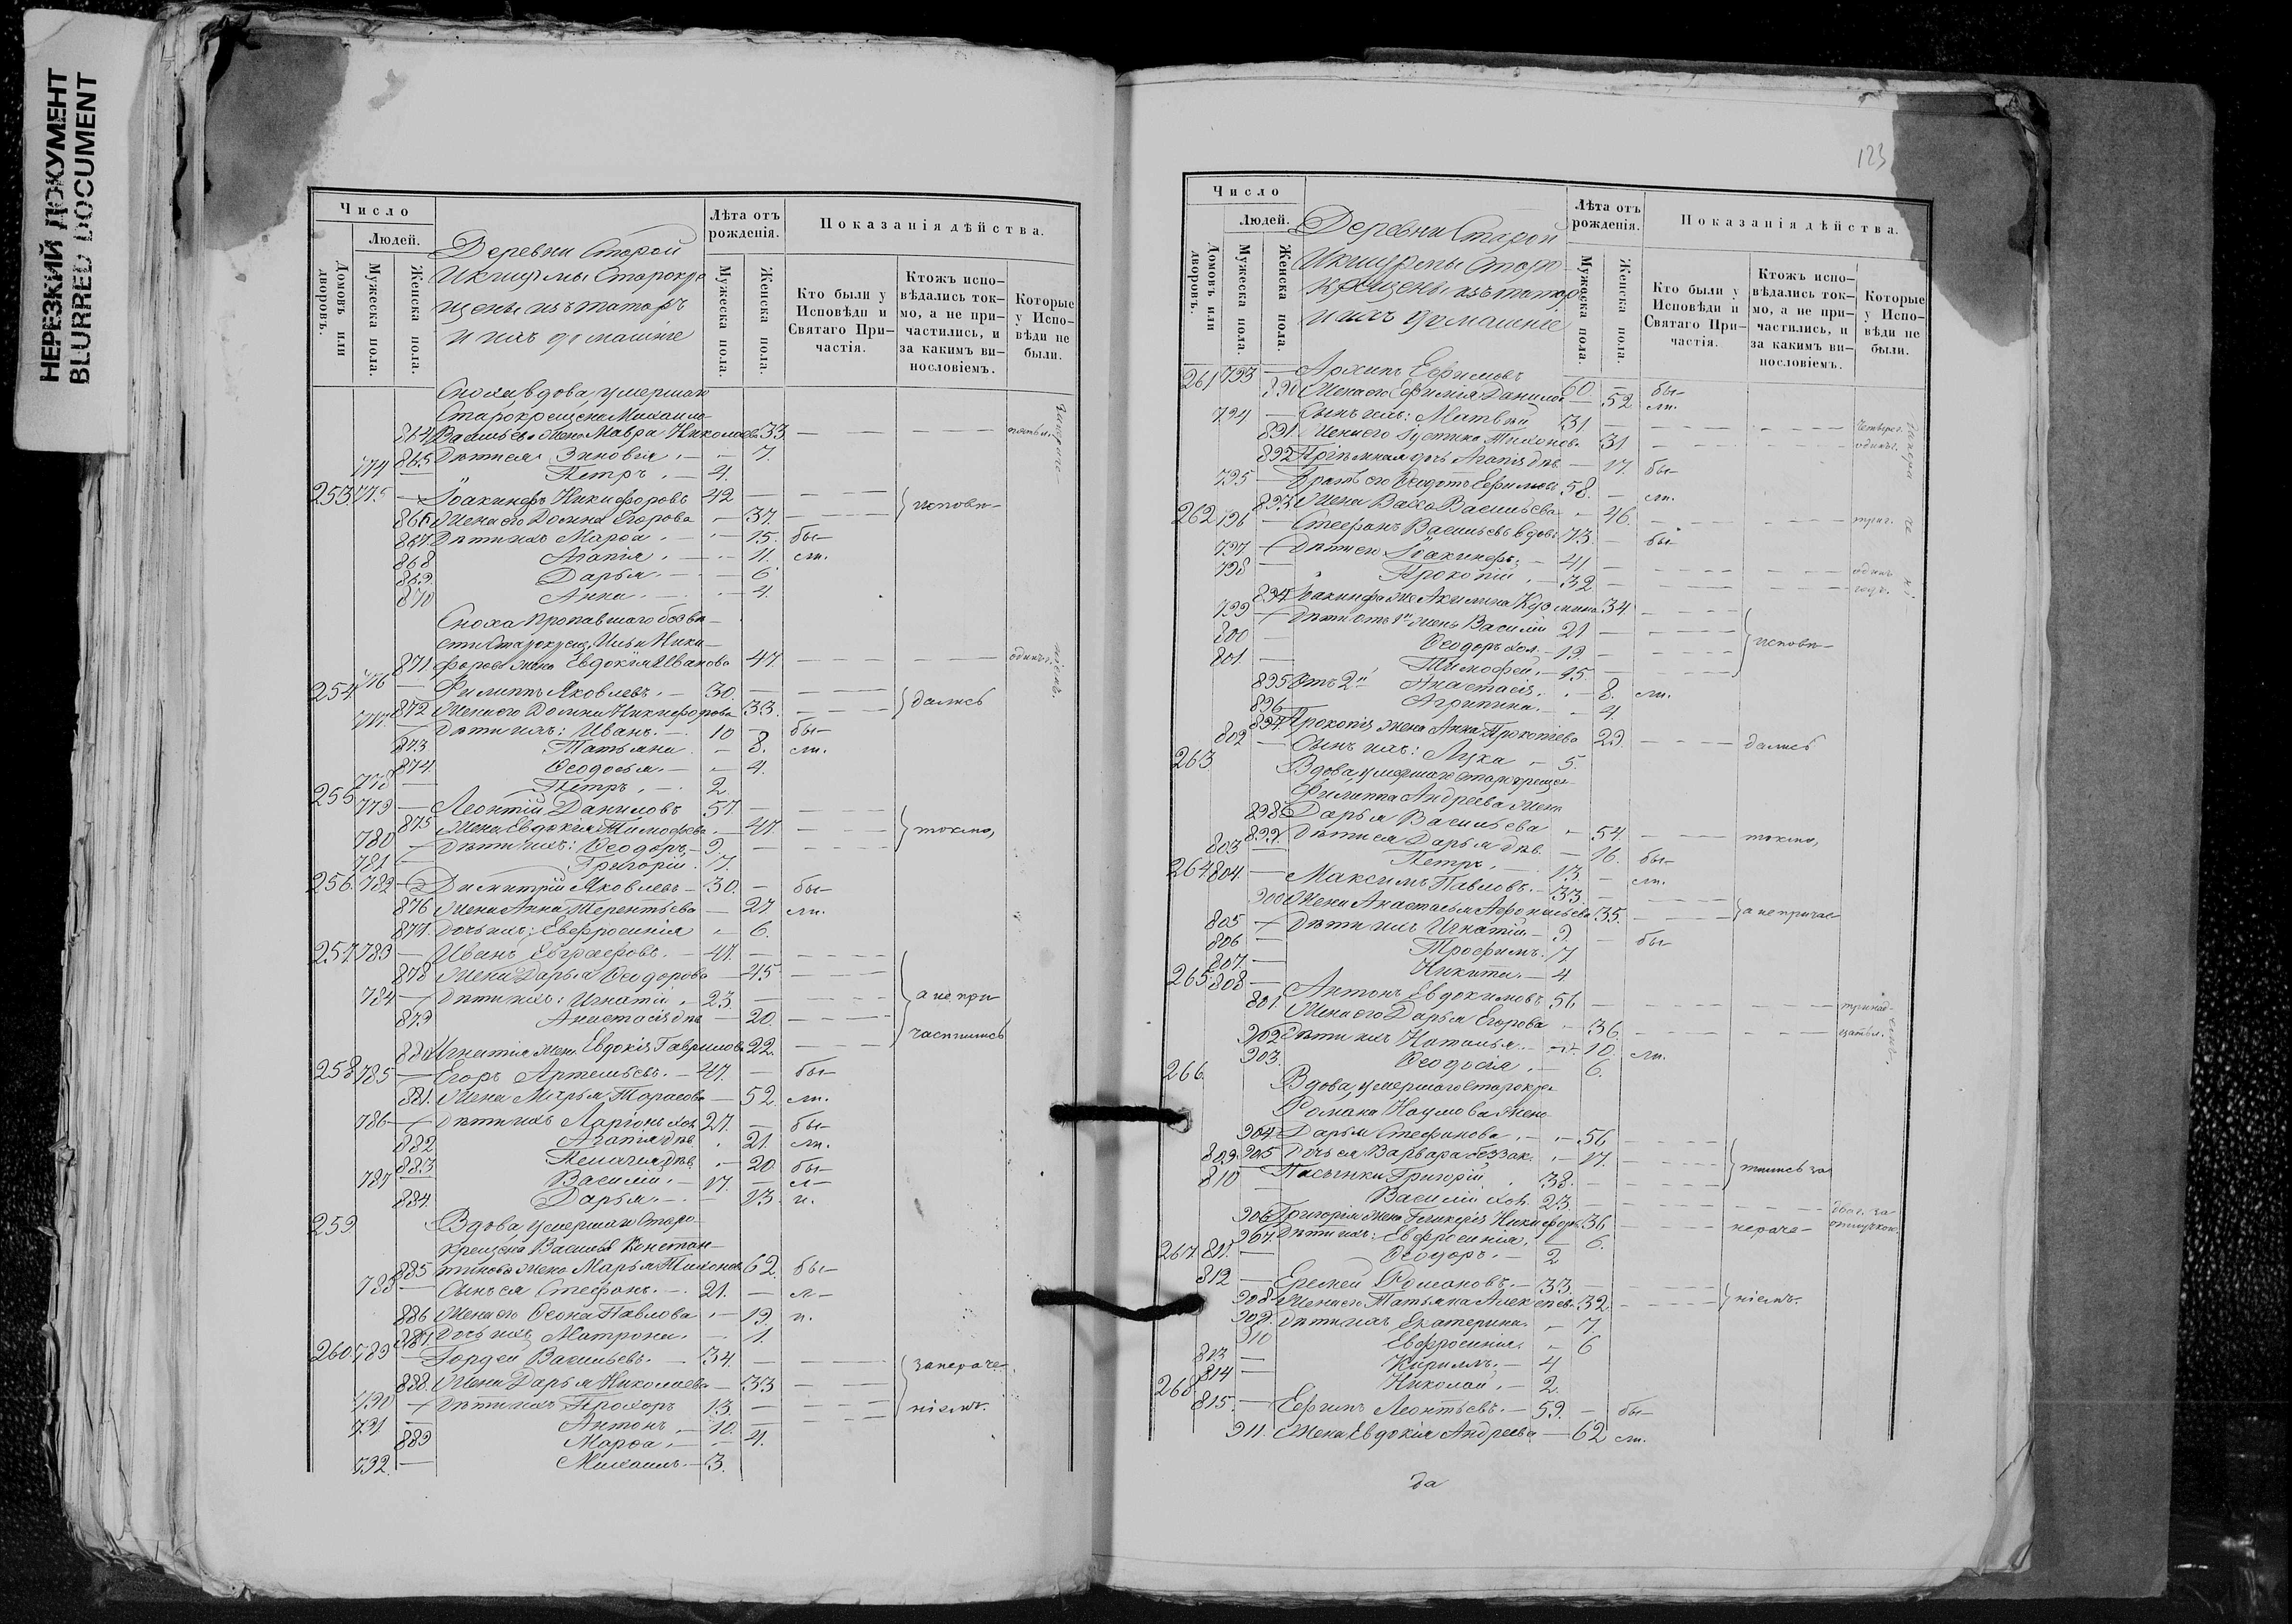 НЕРЕЗКИЙ ДОКУМЕНТ
BLURRED DOCUMENT
Число
Людей.
Домовъ или дворовъ.
Мужеска пола.
Женска пола.
Деревни Старой
Икшурмы Старокре
щены изъ татаръ
и ихъ домашніе
Лѣта отъ рожденія.
Мужеска пола.
Женска пола.
Показанія дѣйства.
Кто были у Исповѣди и Святаго При-частія.
Ктожъ испо-вѣдались ток-мо, а не при-частились, и за какимъ ви-нословіемъ.
Которые у Испо-вѣди не были.
Сноха, вдова умершаго
Старокрещена Михаила
864 Васильева жена Мавра Николаева 33
865 Дѣти ея: Зиновія 7.
774 Петръ 4.
253. 775 Іоакинфъ Никифоровъ 42 исповѣ-
866 Жена его Домна Егорова 37.
867. Дѣти ихъ Марѳа 15. бы-
868 Агапія 11. ли.
869. Дарья 6.
870 Анна 4.
Сноха пропавшаго безвѣ-
сти Старокрещ. Ильи Ники-
871 форова жена Евдокія Иванова 47. одинъ
254 776 Филиппъ Яковлевъ 30.
872 Жена его Домна Никифорова 33. дались
777. Дѣти ихъ: Иванъ 10 бы-
873 Татьяна 8. ли.
874. Ѳеодосья 4.
778 Петръ 2.
255 779 Леонтій Даниловъ 57.
875 Жена Евдокія Тимоѳеева 47. токмо,
780 Дѣти ихъ: Ѳеодоръ 9.
781 Григорій 7.
256. 782 Димитрій Яковлевъ 30. бы-
876 Жена Анна Терентьева 27 ли.
877. Дочь ихъ: Евфросинія 6.
257. 783 Иванъ Евграфовъ 47.
878 Жена Дарья Ѳеодорова 45
784 Дѣти ихъ: Игнатій 23 а не при-
879 Анастасія дѣв. 20.
880 Игнатія жена Евдокія Гаврилова 22. частились
258. 785 Егоръ Артемьевъ 47. бы-
881. Жена Марья Тарасова 52. ли.
786 Дѣти ихъ Ларіонъ хол. 27. бы-
882 Агапія дѣв. 21. ли.
883 Пелагія дѣв. 20. бы-
787 Василій 17. л-
884. Дарья 13. и.
259. Вдова умершаго Старо-
крещена Василья Констан-
885 тинова жена Марья Тихонова 62. бы-
788 Сынъ ея Стефанъ 21. л-
886 Жена его Ѳекла Павлова 19. и.
887. Дочь ихъ Матрона 1.
260. 789 Гордей Васильевъ 34. за нераче-
888. Жена Дарья Николаева 33
790 Дѣти ихъ Прохоръ 13 ніемъ.
791 Антонъ 10.
889 Марѳа 4.
792. Михаилъ 3.
123
Число
Людей.
Домовъ или дворовъ.
Мужеска пола.
Женска пола.
Деревни Старой
Икшурмы Старо
крещены изъ татаръ
и ихъ домашніе
Лѣта отъ рожденія.
Мужеска пола.
Женска пола.
Показанія дѣйства.
Кто были у Исповѣди и Святаго При-частія.
Ктожъ испо-вѣдались ток-мо, а не при-частились, и за какимъ ви-нословіемъ.
Которые у Испо-вѣди не были.
261 793 Архипъ Ефимовъ 60. бы-
890 Жена его Ефимія Данилова 52 ли.
794 Сынъ ихъ: Матвей 31
891. Жена его Іустина Тихонова 31. одинъ
892 Пріемная дочь Агапія дѣв. 17. бы-
795 Братъ его Ѳеодотъ Ефимовъ 58. ли.
893 Жена Васса Васильева 46.
262 796 Стефанъ Васильевъ вдовъ 73. бы-
797 Дѣти его Іоакинфъ 41
798 Прокопій 32
894. Іакинфа же Акилина Кузмина 34
799 Дѣти отъ 1й жены Василій 21
800 Ѳеодоръ хол. 19. исповѣ-
801. Тимоѳей 15.
895 Отъ 2й Анастасія 8. ли.
896 Агрипина 4.
897 Прокопія жена Анна Прокопіева 29. дались
802 Сынъ ихъ: Лука 5.
263 Вдова, умершаго старокрещен
Филиппа Андреева жена
898 Дарья Васильева 54. токмо,
899. Дѣти ея Дарья дѣв. 16. бы-
803 Петръ 13. ли.
264 804. Максимъ Павловъ 33.
900 Жена Анастасья Аѳонасьева 35. а не причас-
805 Дѣти ихъ Игнатій 9. бы-
806 Трофимъ 7
807. Никита 4
265. 808 Антонъ Евдокимовъ 56
801. Жена его Дарья Егорова 36.
902 Дѣти ихъ Наталья 10. ли.
903. Ѳеодосія 6.
266. Вдова, умершаго старокре
Романа Наумова жена
904 Дарья Стефанова 56
905 Дочь ея Варвара беззак. 17.
809. Пасынки Григорій 38. тились за
810 Василій хол. 23.
906 Григорія жена Гликерія Никифор. 36 нераче-
907. Дѣти ихъ: Евфросинія 6.
811. Ѳеодоръ 2
267. 812 Еремей Романовъ 33.
908 Жена его Татьяна Алексѣева 32. ніемъ.
909. Дѣти ихъ Екатерина 7.
910 Евфросинія 6
813 Кириллъ 4
814 Николай 2.
268. 815. Ефимъ Леонтьевъ 59. бы-
911. Жена Евдокія Андреева 62 ли.
да